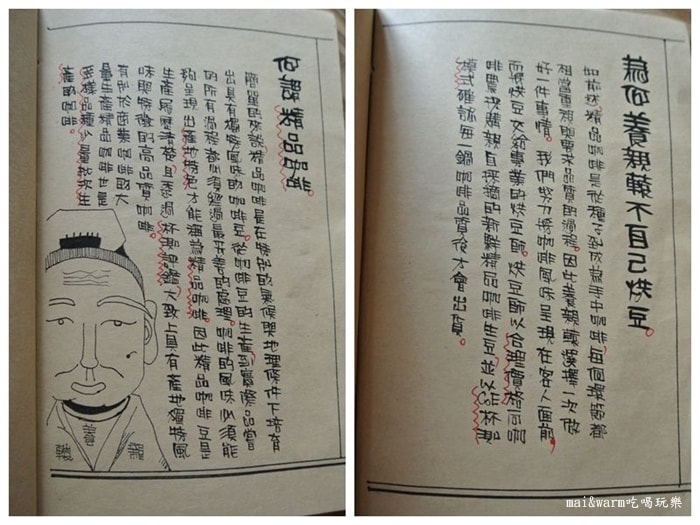 何謂精品咖啡。
簡單的來說精品咖啡是在特別的氣候與地理條件下培育
出具有獨特風味的咖啡豆。從咖啡豆的生產到實際品嘗
的所有過程都必須經過最妥善的處理。咖啡的風味必須能
夠呈現出產地特色才能稱為精品咖啡。因此精品咖啡豆是
生產履歷清楚且透過杯測大致上具有產地獨特風
味與特徵的高品質咖啡。
有別於商業咖啡的大
量生產精品咖啡也是
多樣品種少量批次生
產的咖啡。
養
為何養親轅不自己烘豆。
如前述精品咖啡是從種子到成為手中咖啡,每個環節都
相當重視與要求品質的過程。因此養親轅選擇一次做
好一件事情。我們努力將咖啡風味呈現在客人面前。
而將烘豆交給專業的烘豆師。烘豆師以合理價格向咖
啡農現購親自採摘的新鮮精品咖啡生豆,並以杯測
模式確認每一鍋咖啡品質後才會出貨。
mai&warm吃喝玩樂